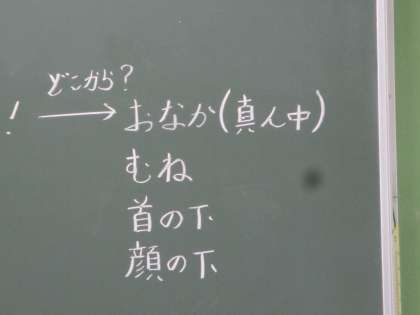 どこから?
! → おなか(真ん中)
むね
首の下
顔の下